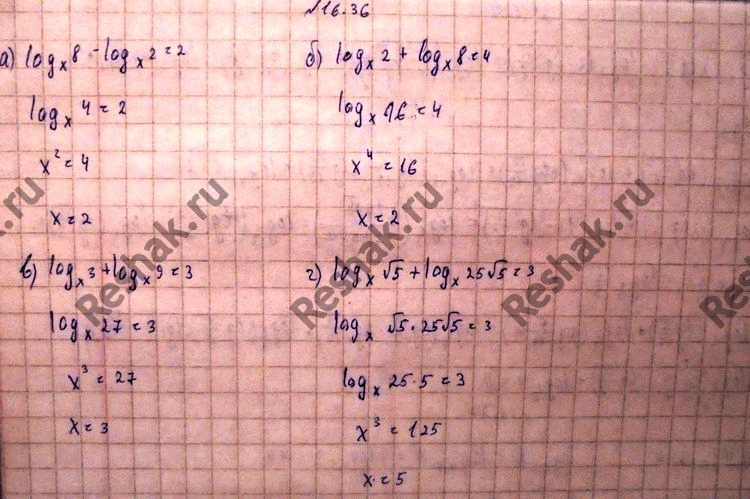 №16.36
а) log_x 8 - log_x 2 = 2
log_x 4 = 2
x² = 4
x = 2
б) log_x 2 + log_x 8 = 4
log_x 16 = 4
x⁴ = 16
x = 2
в) log_x 3 + log_x 9 = 3
log_x 27 = 3
x³ = 27
x = 3
г) log_x √5 + log_x 25√5 = 3
log_x √5 · 25√5 = 3
log_x 25 · 5 = 3
x³ = 125
x = 5
Reshak.ru
Reshak.ru
Reshak.ru
Reshak.ru